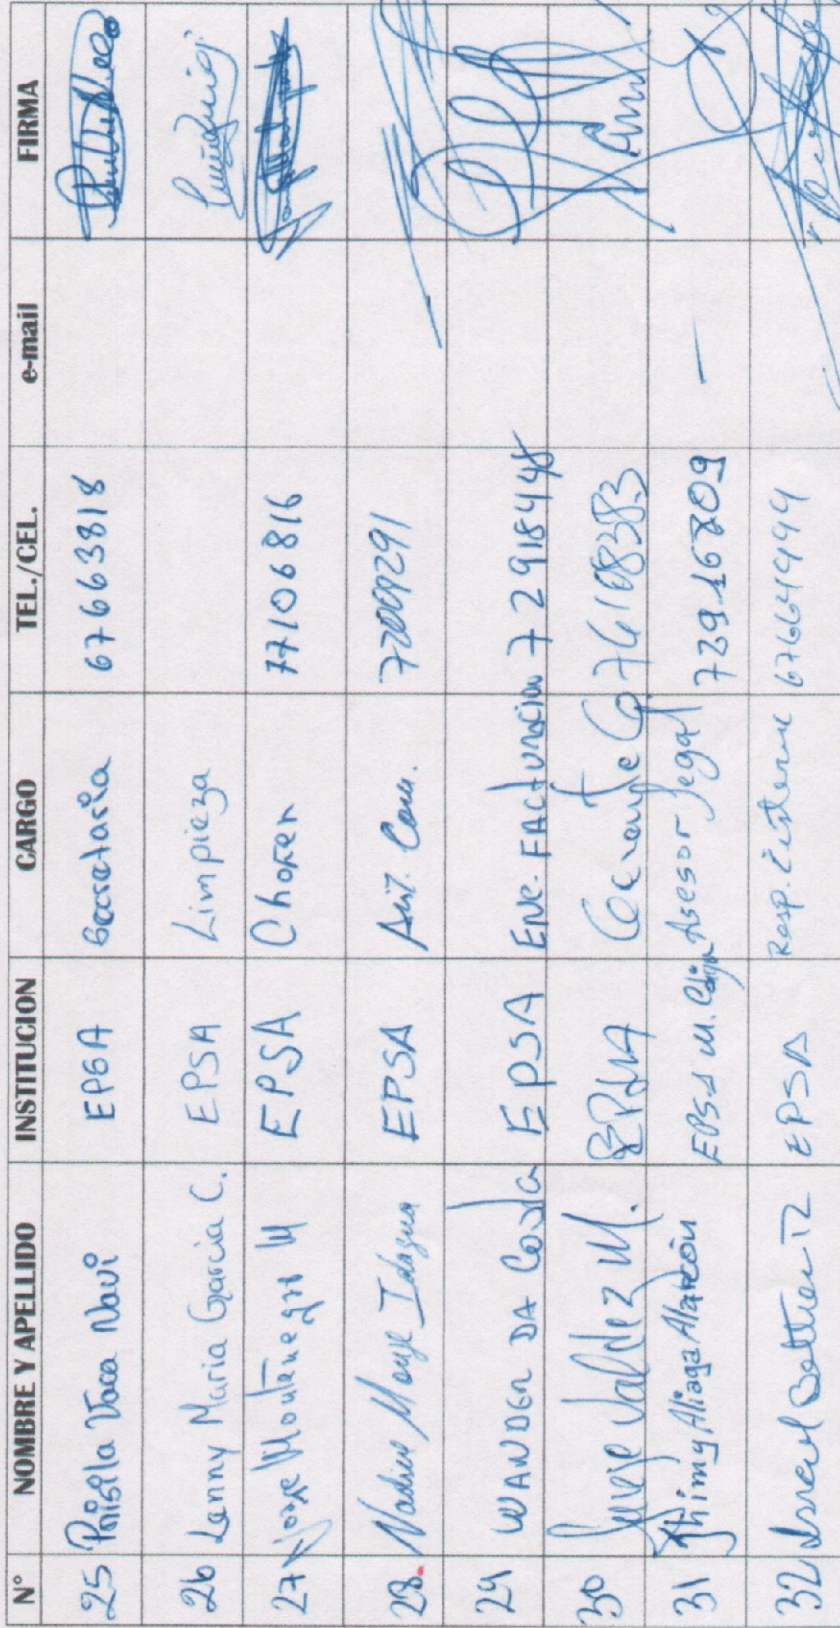 N° NOMBRE Y APELLIDO INSTITUCION CARGO TEL./CEL. e-mail FIRMA
25 Prisila Vaca Navi EPSA Secretaria 67663818
26 Lenny Maria Garcia C. EPSA Limpieza
27 Jose Montenegro M EPSA Chofer 77106816
28. Monje EPSA Com.
29 WANDER DA Costa EPSA ENC. FACturacion 72918448
30 Valdez M. EPSA 76108383
31 Jhimy Aliaga Alarcón EPSA M. Asesor legal 72916809 —
32 EPSA Resp. Cisterna 67664994